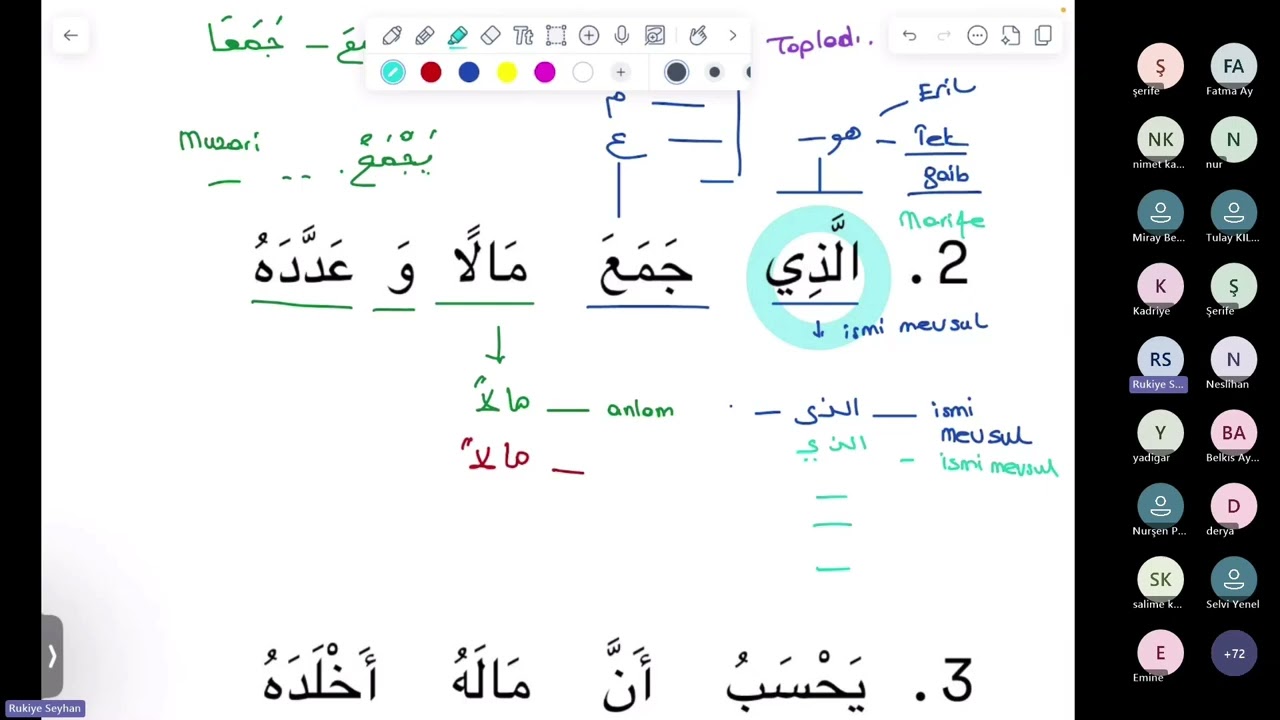 جَمَعَا –
Topladı..
م
Eril
Muzari
يَجْمَعُ
ع
هو
Tek
gaib
Marife
2. الَّذِي جَمَعَ مَالًا وَ عَدَّدَهُ
ismi mevsul
مالاً — anlam
الذي — ismi mevsul
الذي — ismi mevsul
مالاً —
3. يَحْسَبُ أَنَّ مَالَهُ أَخْلَدَهُ
Rukiye Seyhan
Ş FA
şerife Fatma Ay
NK N
nimet ka... nur
Miray Be... Tulay KIL...
K Ş
Kadriye Şerife
RS N
Rukiye S... Neslihan
Y BA
yadigar Belkıs Ay...
D
Nurşen P... derya
SK
salime k... Selvi Yenel
E +72
Emine